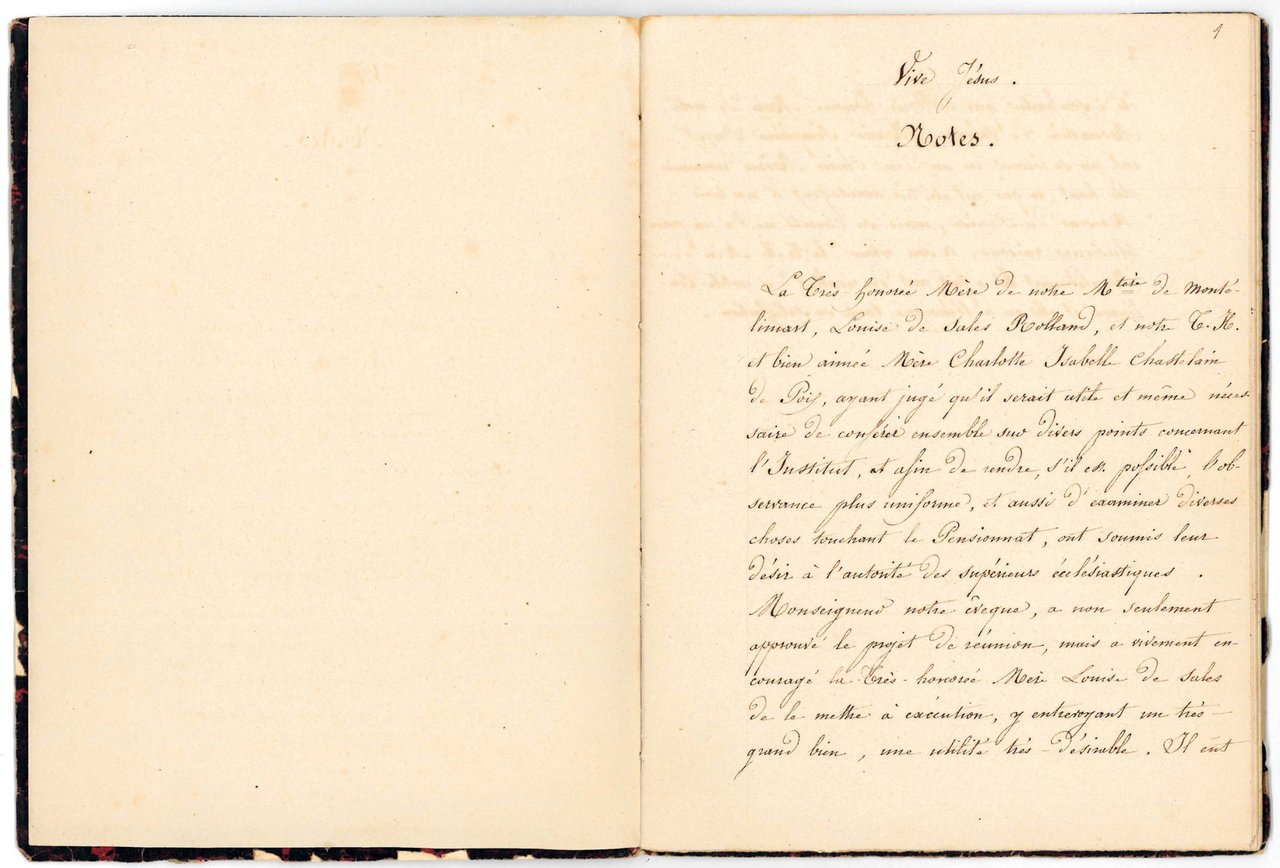 1
Vive Jésus.
Notes.
La Très-honorée Mère de notre Mtère de Monté-
limart, Louise de Sales Rolland, et notre T. H.
et bien aimée Mère Charlotte Isabelle Chastelain
de Poix, ayant jugé qu'il serait utile et même néces-
saire de conférer ensemble sur divers points concernant
l'Institut, et afin de rendre, s'il est possible, l'ob-
servance plus uniforme, et aussi d'examiner diverses
choses touchant le Pensionnat, ont soumis leur
désir à l'autorité des supérieurs écclésiastiques.
Monseigneur notre évèque, a non seulement
approuvé le projet de réunion, mais a vivement en-
couragé la Très-honorée Mère Louise de Sales
de le mettre à exécution, y entrevoyant un très-
grand bien, une utilité très-désirable. Il eût